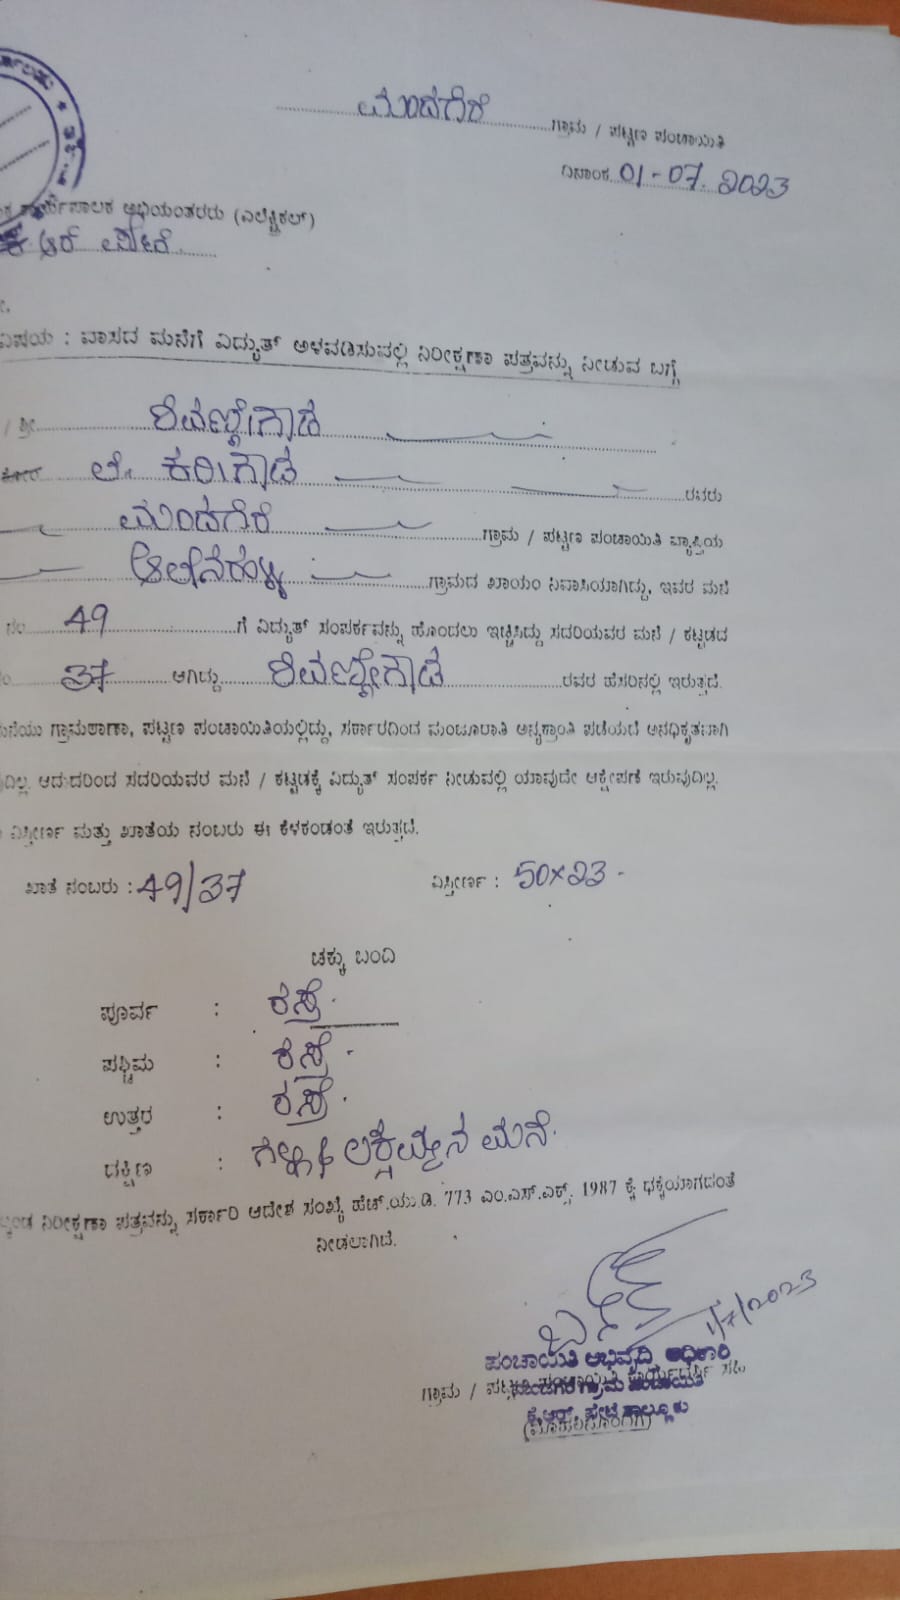 ಮಂದಗೆರೆ ಗ್ರಾಮ / ಪಟ್ಟಣ ಪಂಚಾಯಿತಿ
ದಿನಾಂಕ 01-07-2023
ಕಾರ್ಯಪಾಲಕ ಅಭಿಯಂತರರು (ಎಲೆಕ್ಟ್ರಿಕಲ್)
ಕೆ ಆರ್ ಪೇಟೆ
ವಿಷಯ : ವಾಸದ ಮನೆಗೆ ವಿದ್ಯುತ್ ಅಳವಡಿಸುವಲ್ಲಿ ನಿರೀಕ್ಷಣಾ ಪತ್ರವನ್ನು ನೀಡುವ ಬಗ್ಗೆ
/ ಶ್ರೀ ಶಿವಣ್ಣೇಗೌಡ
ಕೋರಿ ಲೇ. ಕರೀಗೌಡ ರವರು
ಮಂದಗೆರೆ ಗ್ರಾಮ / ಪಟ್ಟಣ ಪಂಚಾಯಿತಿ ವ್ಯಾಪ್ತಿಯ
ಗ್ರಾಮದ ಖಾಯಂ ನಿವಾಸಿಯಾಗಿದ್ದು, ಇವರ ಮನೆ
ನಂ 49 ಗೆ ವಿದ್ಯುತ್ ಸಂಪರ್ಕವನ್ನು ಹೊಂದಲು ಇಚ್ಚಿಸಿದ್ದು ಸದರಿಯವರ ಮನೆ / ಕಟ್ಟಡದ
37 ಆಗಿದ್ದು ಶಿವಣ್ಣೇಗೌಡ ರವರ ಹೆಸರಿನಲ್ಲಿ ಇರುತ್ತದೆ.
ಗ್ರಾಮಠಾಣಾ, ಪಟ್ಟಣ ಪಂಚಾಯಿತಿಯಲ್ಲಿದ್ದು, ಸರ್ಕಾರದಿಂದ ಮಂಜೂರಾತಿ ಅನ್ಯಕ್ರಾಂತಿ ಪಡೆಯದೆ ಅನಧಿಕೃತವಾಗಿ
ಆದುದರಿಂದ ಸದರಿಯವರ ಮನೆ / ಕಟ್ಟಡಕ್ಕೆ ವಿದ್ಯುತ್ ಸಂಪರ್ಕ ನೀಡುವಲ್ಲಿ ಯಾವುದೇ ಆಕ್ಷೇಪಣೆ ಇರುವುದಿಲ್ಲ.
ವಿಸ್ತೀರ್ಣ ಮತ್ತು ಖಾತೆಯ ನಂಬರು ಈ ಕೆಳಕಂಡಂತೆ ಇರುತ್ತದೆ.
ಖಾತೆ ನಂಬರು : 49/37 ವಿಸ್ತೀರ್ಣ : 50×23
ಚಕ್ಕು ಬಂದಿ
ಪೂರ್ವ : ರಸ್ತೆ.
ಪಶ್ಚಿಮ : ರಸ್ತೆ.
ಉತ್ತರ : ರಸ್ತೆ.
ದಕ್ಷಿಣ : ಮನೆ.
ನಿರೀಕ್ಷಣಾ ಪತ್ರವನ್ನು ಸರ್ಕಾರಿ ಆದೇಶ ಸಂಖ್ಯೆ ಹೆಚ್.ಯು.ಡಿ. 773 ಎಂ.ಎಸ್.ಎಕ್ಸ್. 1987 ಕ್ಕೆ ಧಕ್ಕೆಯಾಗದಂತೆ
ನೀಡಲಾಗಿದೆ.
1/7/2023
ಪಂಚಾಯಿತಿ ಅಭಿವೃದ್ಧಿ ಅಧಿಕಾರಿ
ಗ್ರಾಮ / ಪಟ್ಟಣ ಪಂಚಾಯಿತಿ ಕಾರ್ಯದರ್ಶಿ ಸಹಿ
ಮಂದಗೆರೆ ಗ್ರಾಮ ಪಂಚಾಯಿತಿ
ಕೆ.ಆರ್. ಪೇಟೆ ತಾಲ್ಲೂಕು